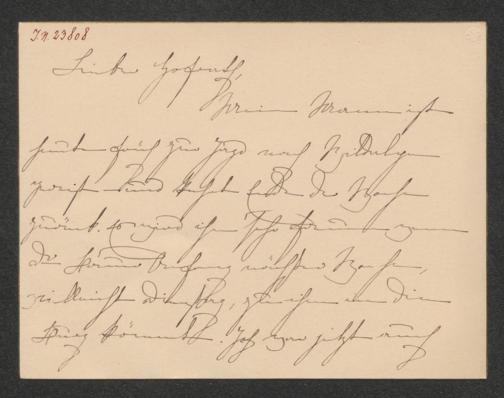 I.N. 23808
Lieber Hofrath,
Mein Mann ist
heute früh zur Jagd nach
gereist und kehrt Ende der Woche
zurück. Es wird ihn sehr freuen wenn
Sie Anfang nächster Woche,
vielleicht Dienstag, zu ihm in die
Burg kommen. Ich war jetzt auch